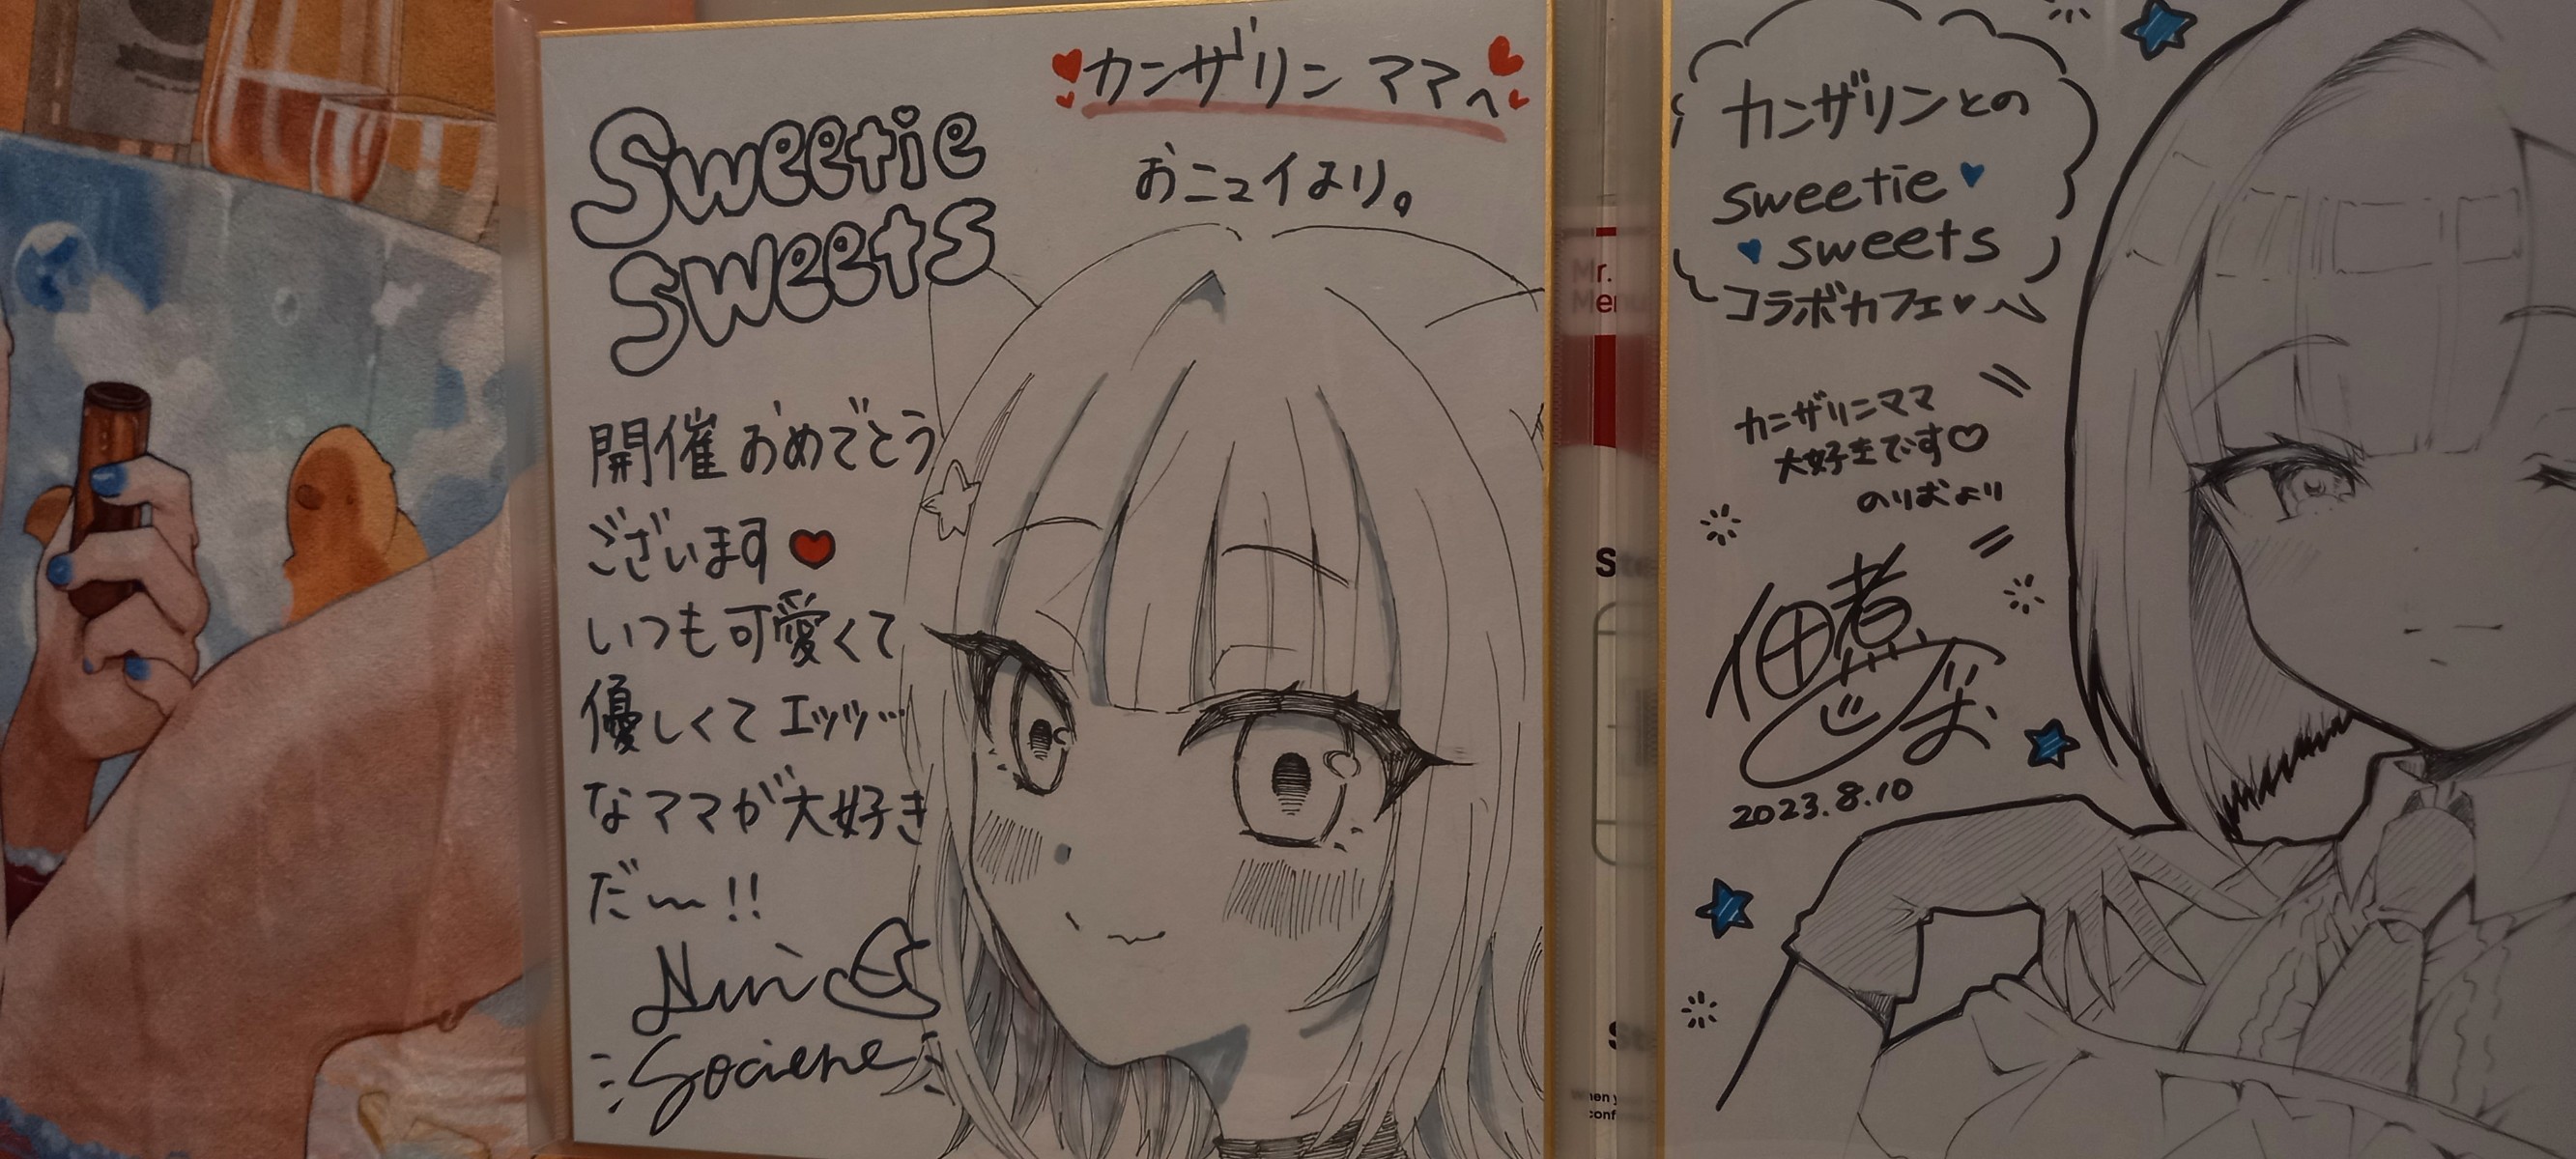 カンザリンママへ
おニュイより。
Sweetie
Sweets
開催おめでとう
ございます
いつも可愛くて
優しくてエッッッ…
なママが大好き
だ〜!!
Sociere
Mr.
カンザリンとの
sweetie
sweets
コラボカフェへ
カンザリンママ
大好きです♡
のりおより
佃煮
のりお
2023.8.10